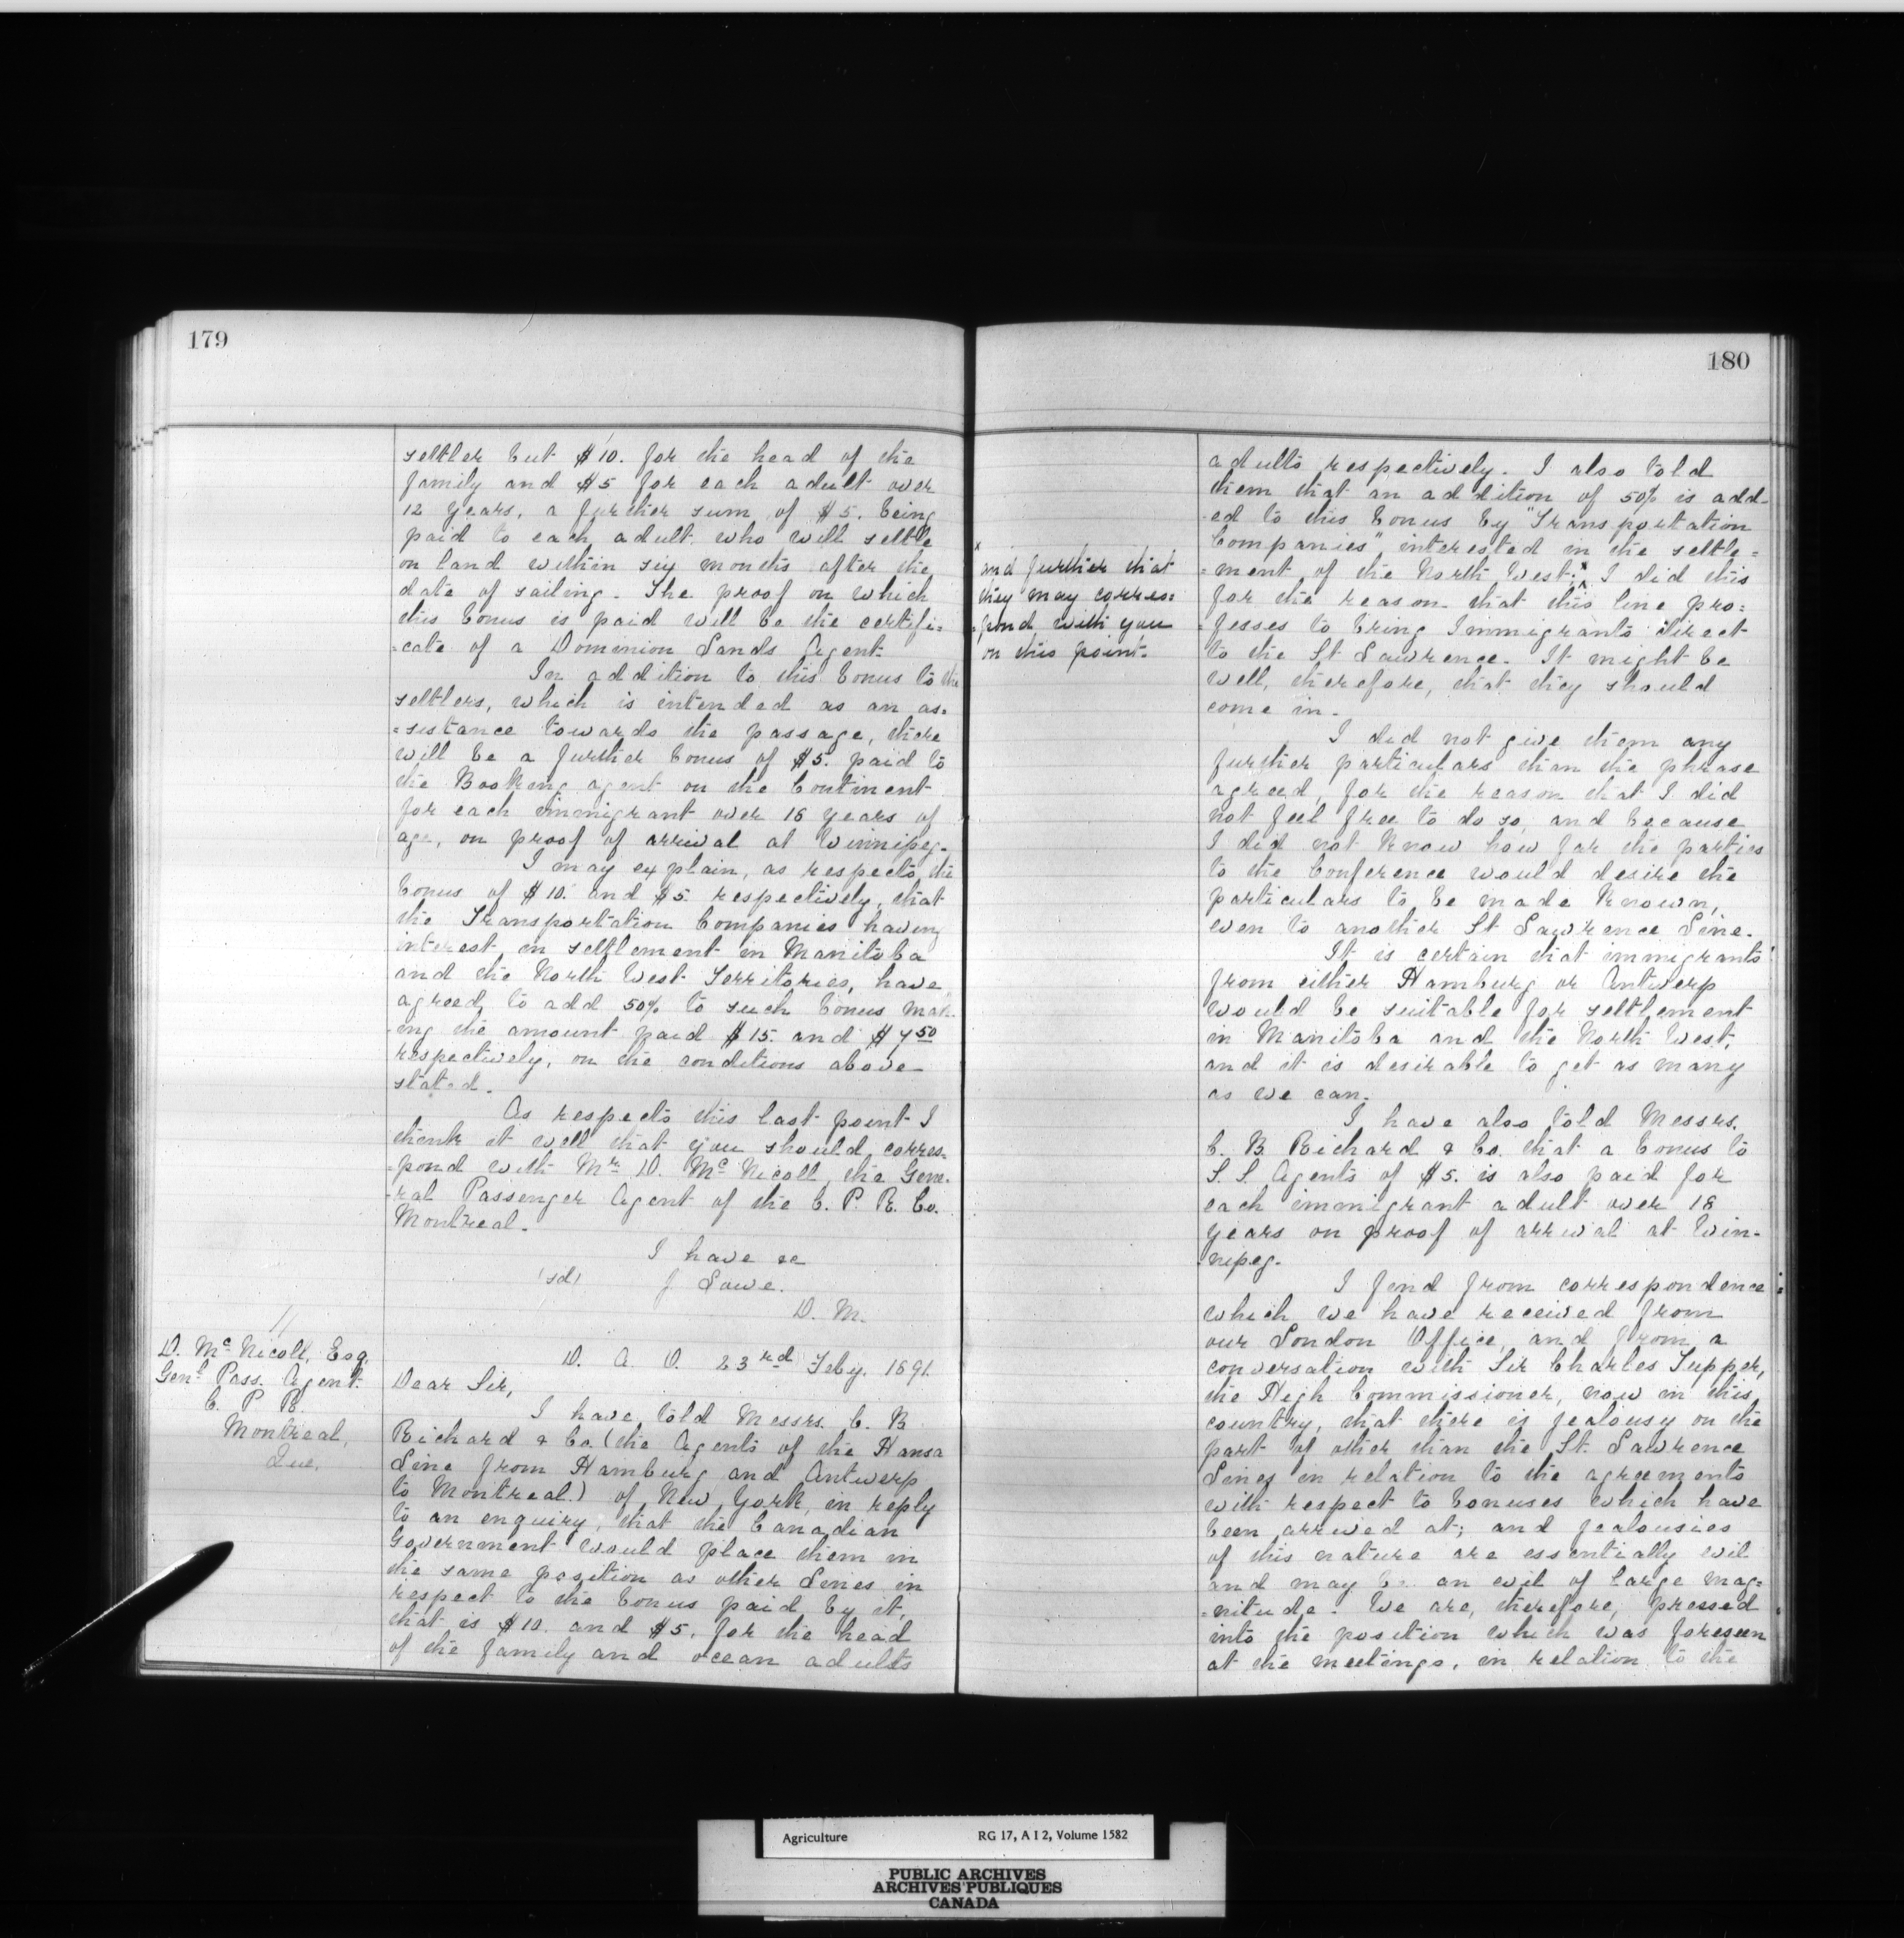 179
settler but $10. for the head of the
family and $5 for each adult over
12 years, a further sum of $5. being
paid to each adult who will settle
on land within six months after the
date of sailing. The proof on which
this bonus is paid will be the certifi=
=cate of a Dominion Lands Agent.
In addition to this bonus to the
settlers, which is intended as an as=
=sistance towards the passage, there
will be a further bonus of $5. paid to
the Booking agent on the Continent
for each immigrant over 18 years of
age, on proof of arrival at Winnipeg.
I may explain, as respects the
bonus of $10. and $5. respectively, that
the Transportation Companies having
interest in settlement in Manitoba
and the North West Territories, have
agreed to add 50% to such bonus mak-
-ing the amount paid $15. and $7 50
respectively, on the conditions above
stated.
As respects this last point I
think it well that you should corres=
=pond with Mr. D. Mc Nicoll, the Gene-
-ral Passenger Agent of the C. P. R. Co.
Montreal.
I have &c
(sd) J Lowe.
D. M.
D. Mc Nicoll, Esq.
Genl. Pass. Agent.
C. P. R.
Montreal,
Que.
D. A. O. 23rd Feby. 1891.
Dear Sir,
I have told Messrs. C. B.
Richard & Co. (the Agents of the Hansa
Line from Hamburg and Antwerp
to Montreal.) of New York, in reply
to an enquiry, that the Canadian
Government would place them in
the same position as other Lines in
respect to the bonus paid by it,
that is $10. and $5. for the head
of the family and ocean adults
180
adults respectively. I also told
them that an addition of 50% is add-
-ed to this bonus by "Transportation
Companies" interested in the settle=
=ment of the North West:x I did this
x
and further that
they may corres=
=pond with you
on this point.
for the reason that this line pro=
=fesses to bring Immigrants direct
to the St Lawrence. It might be
well, therefore, that they should
come in.
I did not give them any
further particulars than the phrase
agreed, for the reason that I did
not feel free to do so, and because
I did not know how far the parties
to the Conference would desire the
particulars to be made known,
even to another St Lawrence Line.
It is certain that immigrants
from either Hamburg or Antwerp
would be suitable for settlement
in Manitoba and the North West,
and it is desirable to get as many
as we can.
I have also told Messrs.
C. B. Richard & Co. that a bonus to
S. S. Agents of $5. is also paid for
each immigrant adult over 18
years on proof of arrival at Win-
nipeg.
I find from correspondence
which we have received from
our London Office, and from a
conversation with Sir Charles Tupper,
the High Commissioner, now in this
country, that there is jealousy on the
part of other than the St. Lawrence
Lines in relation to the agreements
with respect to bonuses which have
been arrived at; and jealousies
of this nature are essentially evil
and may be an evil of large mag=
=nitude. We are, therefore, pressed
into the position which was foreseen
at the meetings, in relation to the
Agriculture RG 17, A I 2, Volume 1582
PUBLIC ARCHIVES
ARCHIVES PUBLIQUES
CANADA